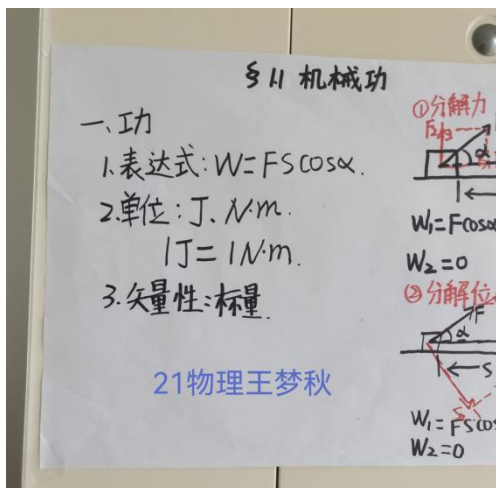 §1.1 机械功
一、功
1.表达式:W=FScosα.
2.单位:J、N·m.
1J=1N·m.
3.矢量性:标量.
21物理王梦秋
①分解力
F2
α
W₁=Fcosα
W₂=0
②分解位
F
α
S
W₁=FScos
W₂=0